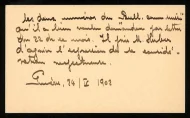 les deux numéros du Bull. 
qu'il a bien voulu demander par lettre
du 22 de ce mois. Il prie M.
d'agréer l'expression de sa considé-
ration respectueuse.
24 / IX 1903